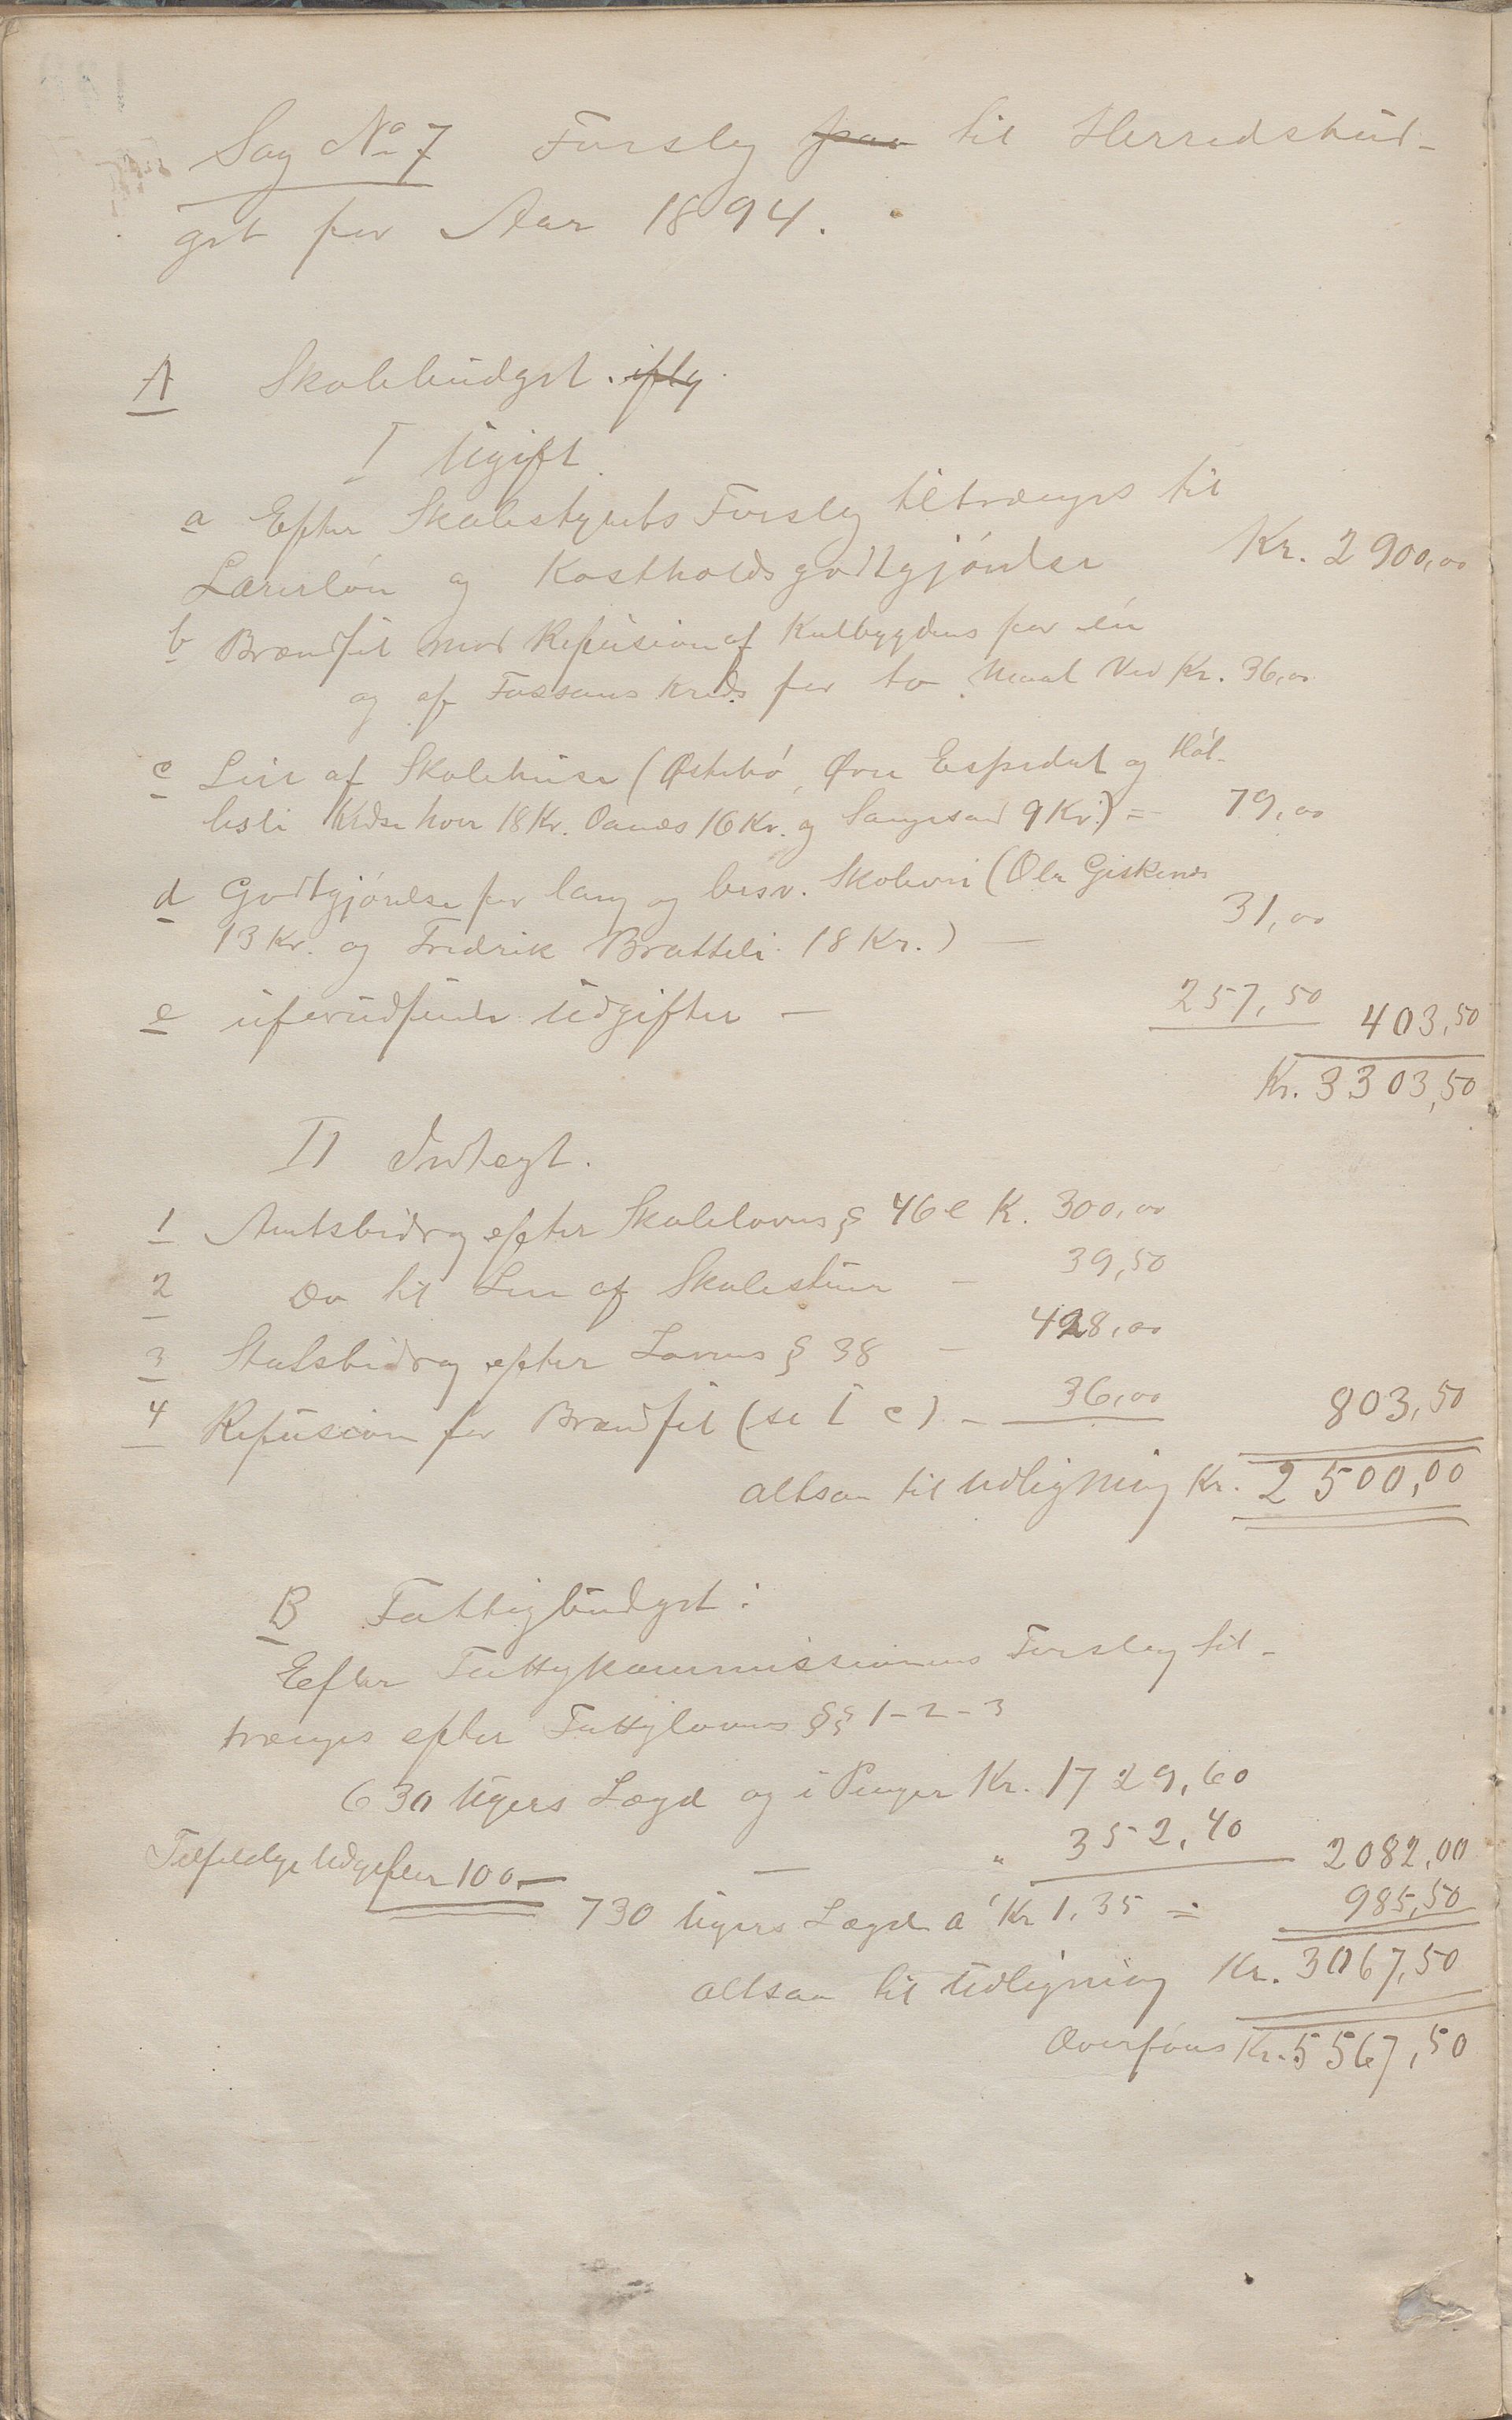 Sag No 7 Forslag paa til Herredsbud-
get for Aar 1894.
A Skolebudget. iflg.
I Ugift.
a Efter Skolestyrets Forslag tiltrænges til
Lærerløn og Kostholdsgodtgjørelse Kr. 2900,00
b Brændsel mod Refusion af Kalbygdens for én
og af Fossans Kreds for to Maal Ved Kr. 36,00
c Leie af Skolehuse (Østebø, Øvre Espedal og Høl-
lesli Kredse hver 18 Kr. Oanæs 16 Kr. og Sangesand 9 Kr.) = 79,00
d Godtgjørelse for lang og besv. Skolevei (Ole Giskenes
13 Kr. og Fredrik Bratteli 18 Kr.) — 31,00
e uforudseede Udgifter — 257,50 403,50
Kr. 3303,50
II Indtægt.
1 Amtsbidrag efter Skolelovens § 46 e K. 300,00
2 Do til Leie af Skolestuer — 39,50
3 Statsbidrag efter Lovens § 38 — 428,00
4 Refusion for Brændsel (se I c) — 36,00 803,50
altsaa til Udligning Kr. 2500,00
B Fattigbudget:
Efter Fattigkommissionens Forslag til-
trænges efter Fattiglovens §§ 1-2-3
630 Ugers Lægd og i Penger Kr. 1729,60
Tilfeldige Udgifter 100,— — " 352,40 2082,00
730 Ugers Lægd a Kr 1,35 = 985,50
altsaa til Udligning Kr. 3067,50
Overføres Kr. 5567,50